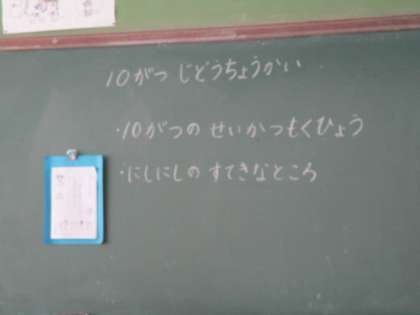 10がつ じどうちょうかい
・10がつの せいかつもくひょう
・にしにしの すてきなところ